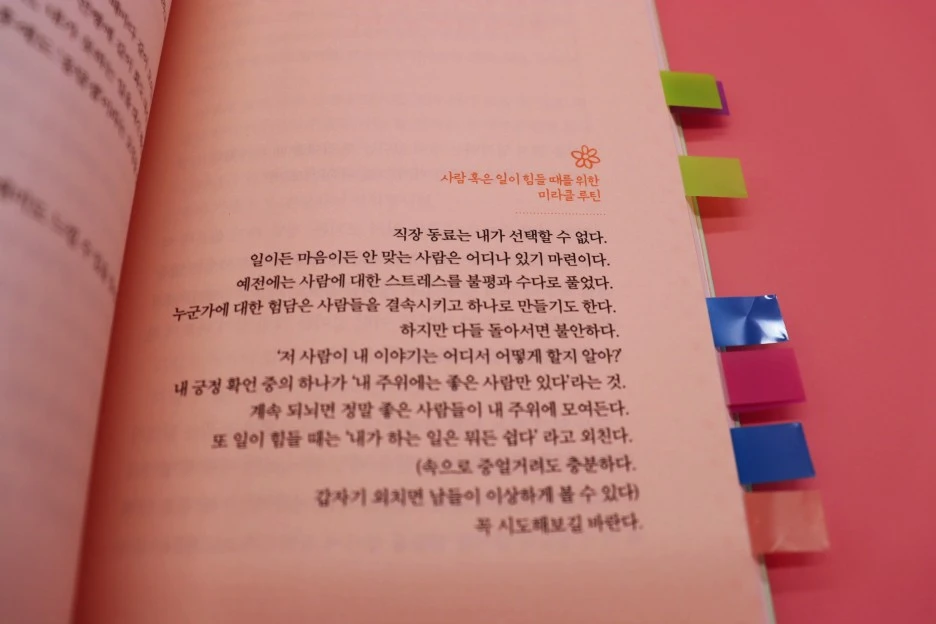 사람 혹은 일이 힘들 때를 위한
미라클 루틴
직장 동료는 내가 선택할 수 없다.
일이든 마음이든 안 맞는 사람은 어디나 있기 마련이다.
예전에는 사람에 대한 스트레스를 불평과 수다로 풀었다.
누군가에 대한 험담은 사람들을 결속시키고 하나로 만들기도 한다.
하지만 다들 돌아서면 불안하다.
‘저 사람이 내 이야기는 어디서 어떻게 할지 알아?’
내 긍정 확언 중의 하나가 ‘내 주위에는 좋은 사람만 있다’라는 것.
계속 되뇌면 정말 좋은 사람들이 내 주위에 모여든다.
또 일이 힘들 때는 ‘내가 하는 일은 뭐든 쉽다’ 라고 외친다.
(속으로 중얼거려도 충분하다.
갑자기 외치면 남들이 이상하게 볼 수 있다)
꼭 시도해보길 바란다.